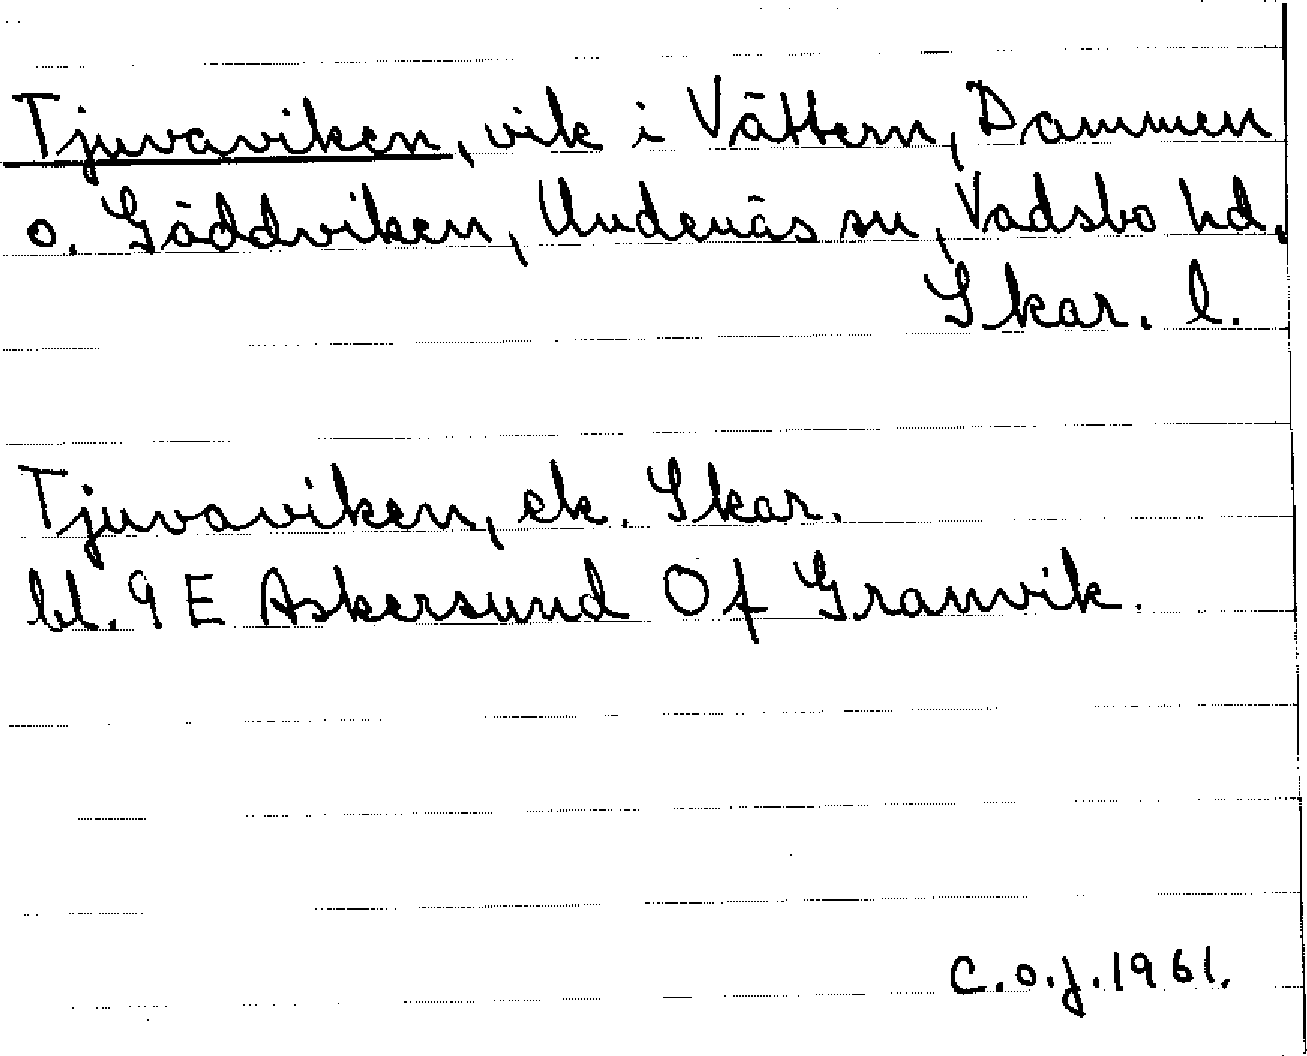 Tjuvaviken, vik i Vättern, Dammen
o. Gäddviken, Undenäs sn, Vadsbo hd.
Skar. l.
Tjuvaviken, ek. Skar.
bl. 9 E Askersund Of Granvik.
C.o.J. 1961.